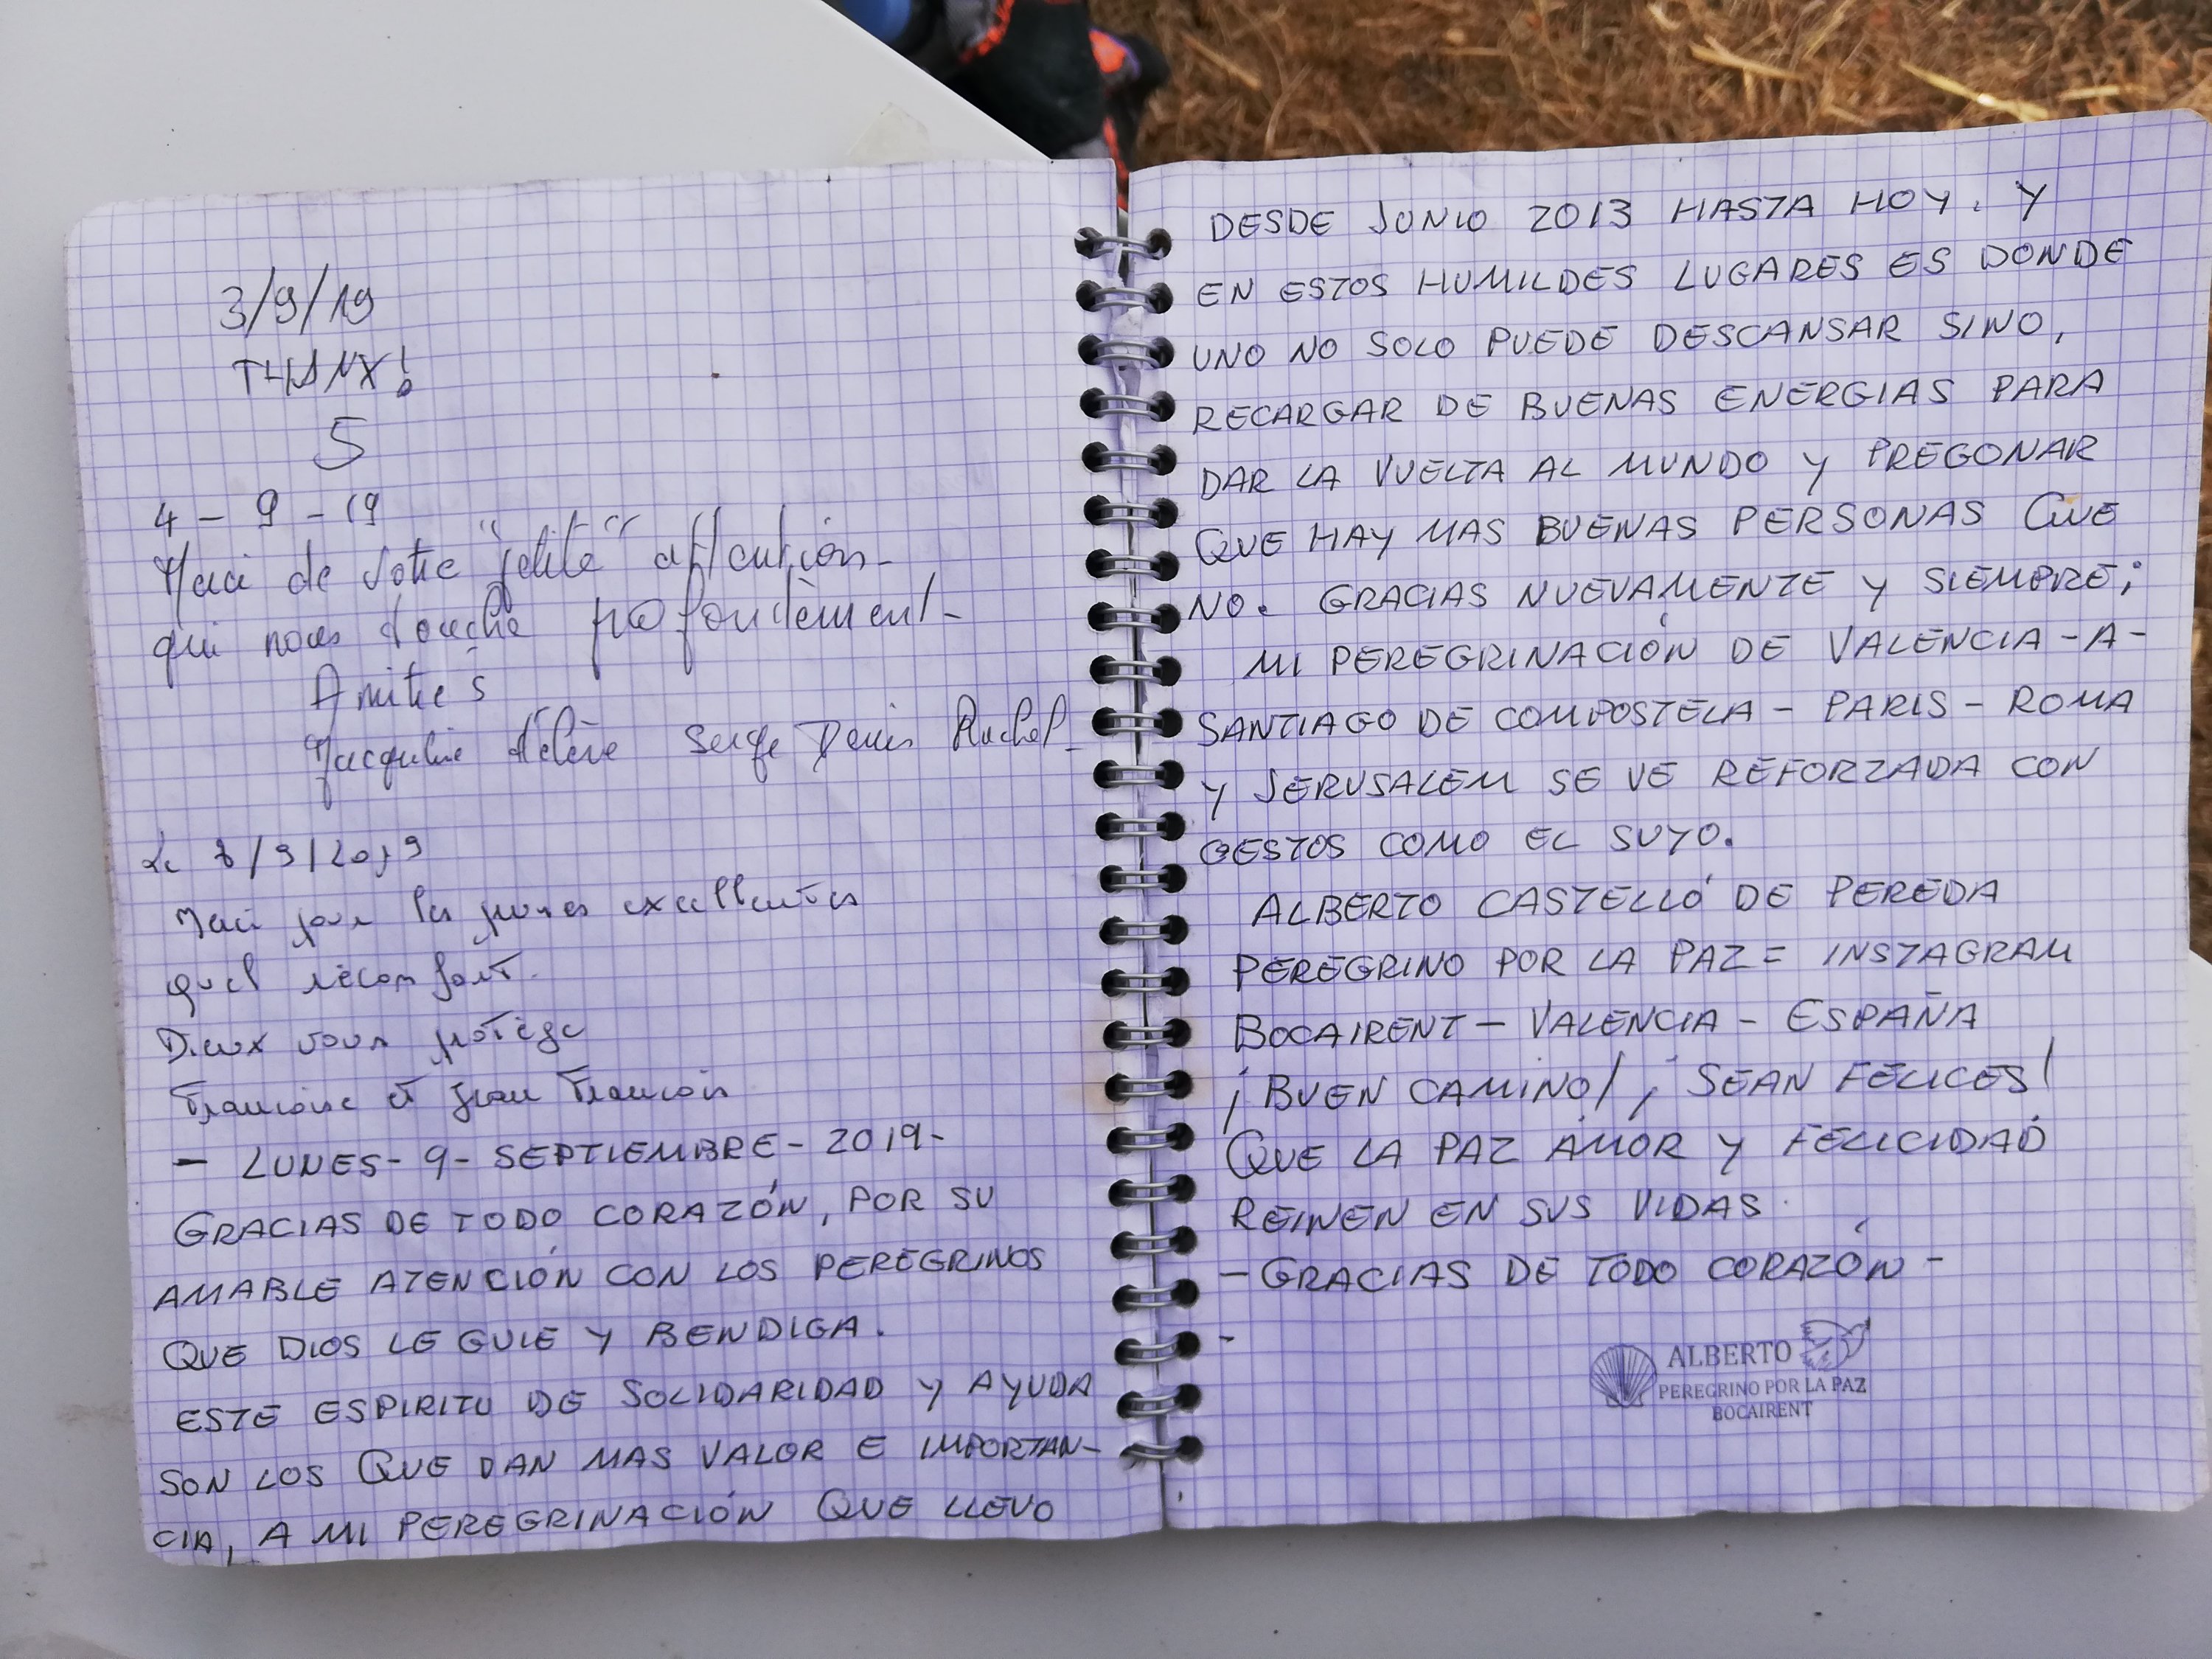 3/9/19
THANX!
5
4 - 9 - 19
Merci de votre "petite"
qui nous touche profondèment -
Amitiés
Jacqueline Hélène Serge Denis Rachel -
Le 8/9/2019
Merci pour les prunes excellentes
quel réconfort.
Dieux vous protège
Francoise et Jean Francois
- LUNES - 9 - SEPTIEMBRE - 2019 -
GRACIAS DE TODO CORAZÓN, POR SU
AMABLE ATENCIÓN CON LOS PEREGRINOS
QUE DIOS LE GUIE Y BENDIGA.
ESTE ESPIRITU DE SOLIDARIDAD Y AYUDA
SON LOS QUE DAN MAS VALOR E IMPORTAN-
CIA, A MI PEREGRINACIÓN QUE LLEVO
DESDE JUNIO 2013 HASTA HOY. Y
EN ESTOS HUMILDES LUGARES ES DONDE
UNO NO SOLO PUEDE DESCANSAR SINO,
RECARGAR DE BUENAS ENERGIAS PARA
DAR LA VUELTA AL MUNDO Y PREGONAR
QUE HAY MAS BUENAS PERSONAS QUE
NO. GRACIAS NUEVAMENTE Y SIEMPRE;
MI PEREGRINACIÓN DE VALENCIA - A -
SANTIAGO DE COMPOSTELA - PARIS - ROMA
Y JERUSALEM SE VE REFORZADA CON
GESTOS COMO EL SUYO.
ALBERTO CASTELLÓ DE PEREDA
PEREGRINO POR LA PAZ = INSTAGRAM
BOCAIRENT - VALENCIA - ESPAÑA
¡BUEN CAMINO! ¡SEAN FELICES!
QUE LA PAZ AMOR Y FELICIDAD
REINEN EN SUS VIDAS.
- GRACIAS DE TODO CORAZÓN -
-
ALBERTO
PEREGRINO POR LA PAZ
BOCAIRENT